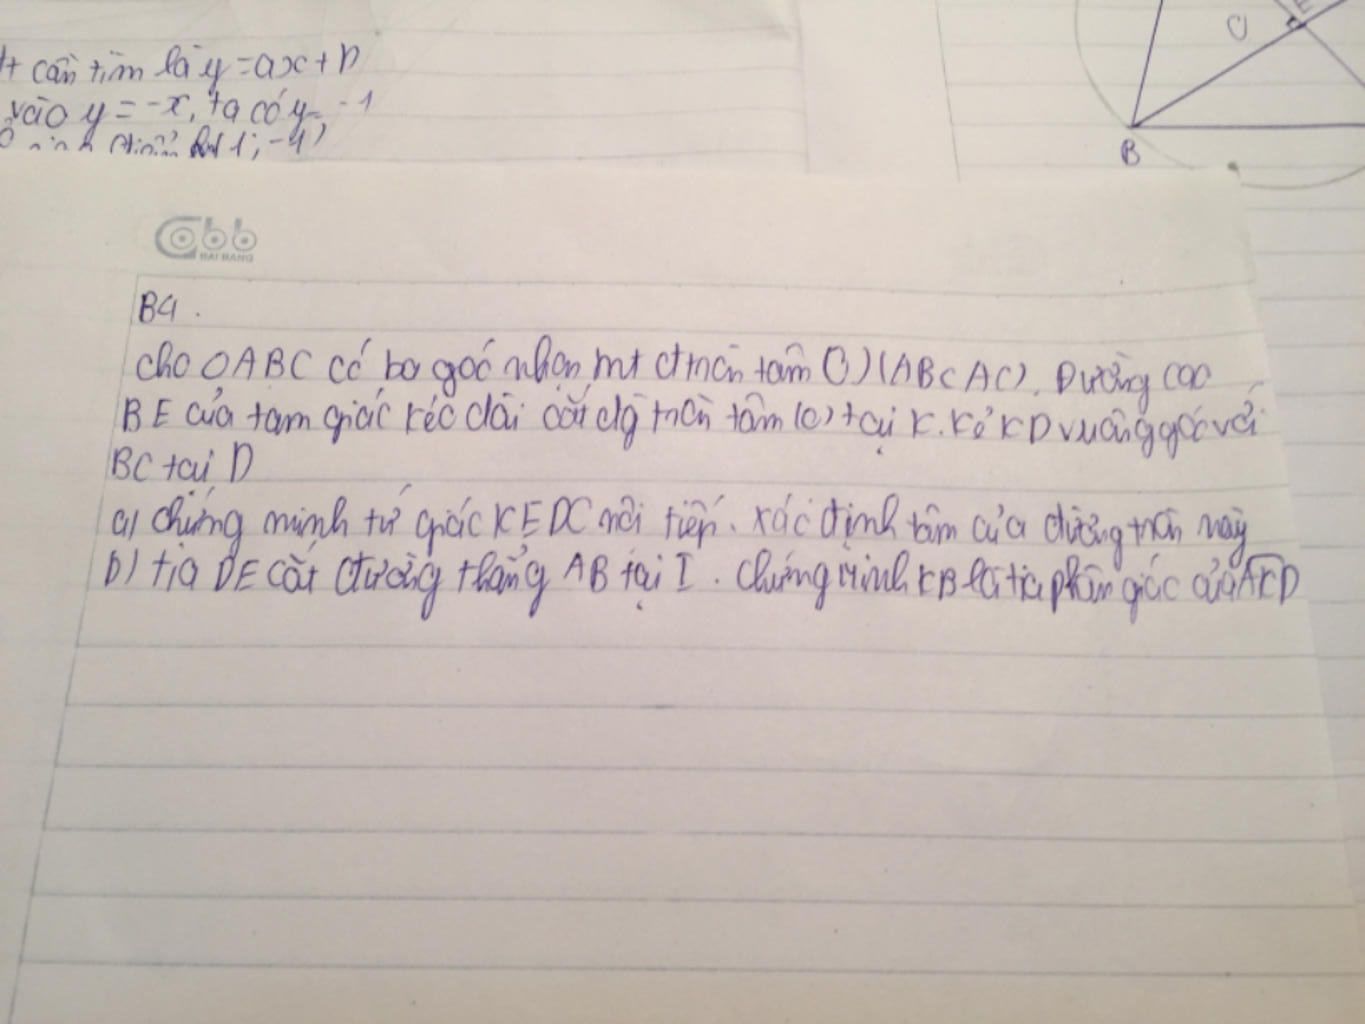 cần tìm là y=ax+b
vào y=-x, ta có y=-1
1; -1)
B
E
O
abb
BAI BANG
B4.
Cho △ABC có ba góc nhọn, nt đtròn tâm O)(AB<AC). Đường cao
BE của tam giác kéo dài cắt đg tròn tâm (O) tại K. Kẻ KD vuông góc với
BC tại D
a) chứng minh tứ giác KEDC nội tiếp. xác định tâm của đường tròn này
b) tia DE cắt đường thẳng AB tại I. Chứng minh KB là tia phân giác của AKD